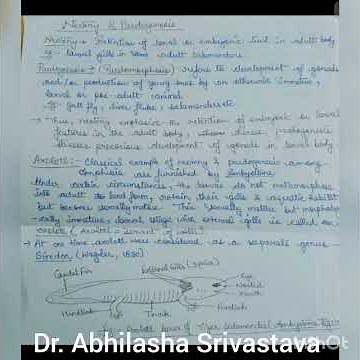 Neoteny & Paedogenesis
Neoteny → Retention of larval or embryonic trait in adult body
eg. larval gills in some adult salamanders
Paedogenesis → (Paedomorphosis) refers to development of gonads
and/or production of young ones by an otherwise immature,
larval or pre-adult animal.
eg. Gall fly, liver fluke, salamanders etc
→ Thus, neoteny emphasise the retention of embryonic or larval
features in the adult body, whereas paedogenesis
stresses precocious development of gonads in larval body
Axolotl:- Classical example of neoteny & paedogenesis among
amphibia are furnished by
Under certain circumstances, the larvae do not metamorphose
into adult land form, retain their gills & aquatic habitat
but becomes sexually mature. This sexually mature but morpholo-
gically immature, larval stage with external gills is called an
axolotl (axolotl = servant of water)
• At one time axolotl were considered as a separate genus
Siredon (Wagler, 1830)
Caudal Fin
External Gills (3 pairs)
Eye
Nostril
Mouth
Hindlimb
Trunk
Forelimb
Fig. Axolotl larva of Tiger Salamander
Dr. Abhilasha Srivastava